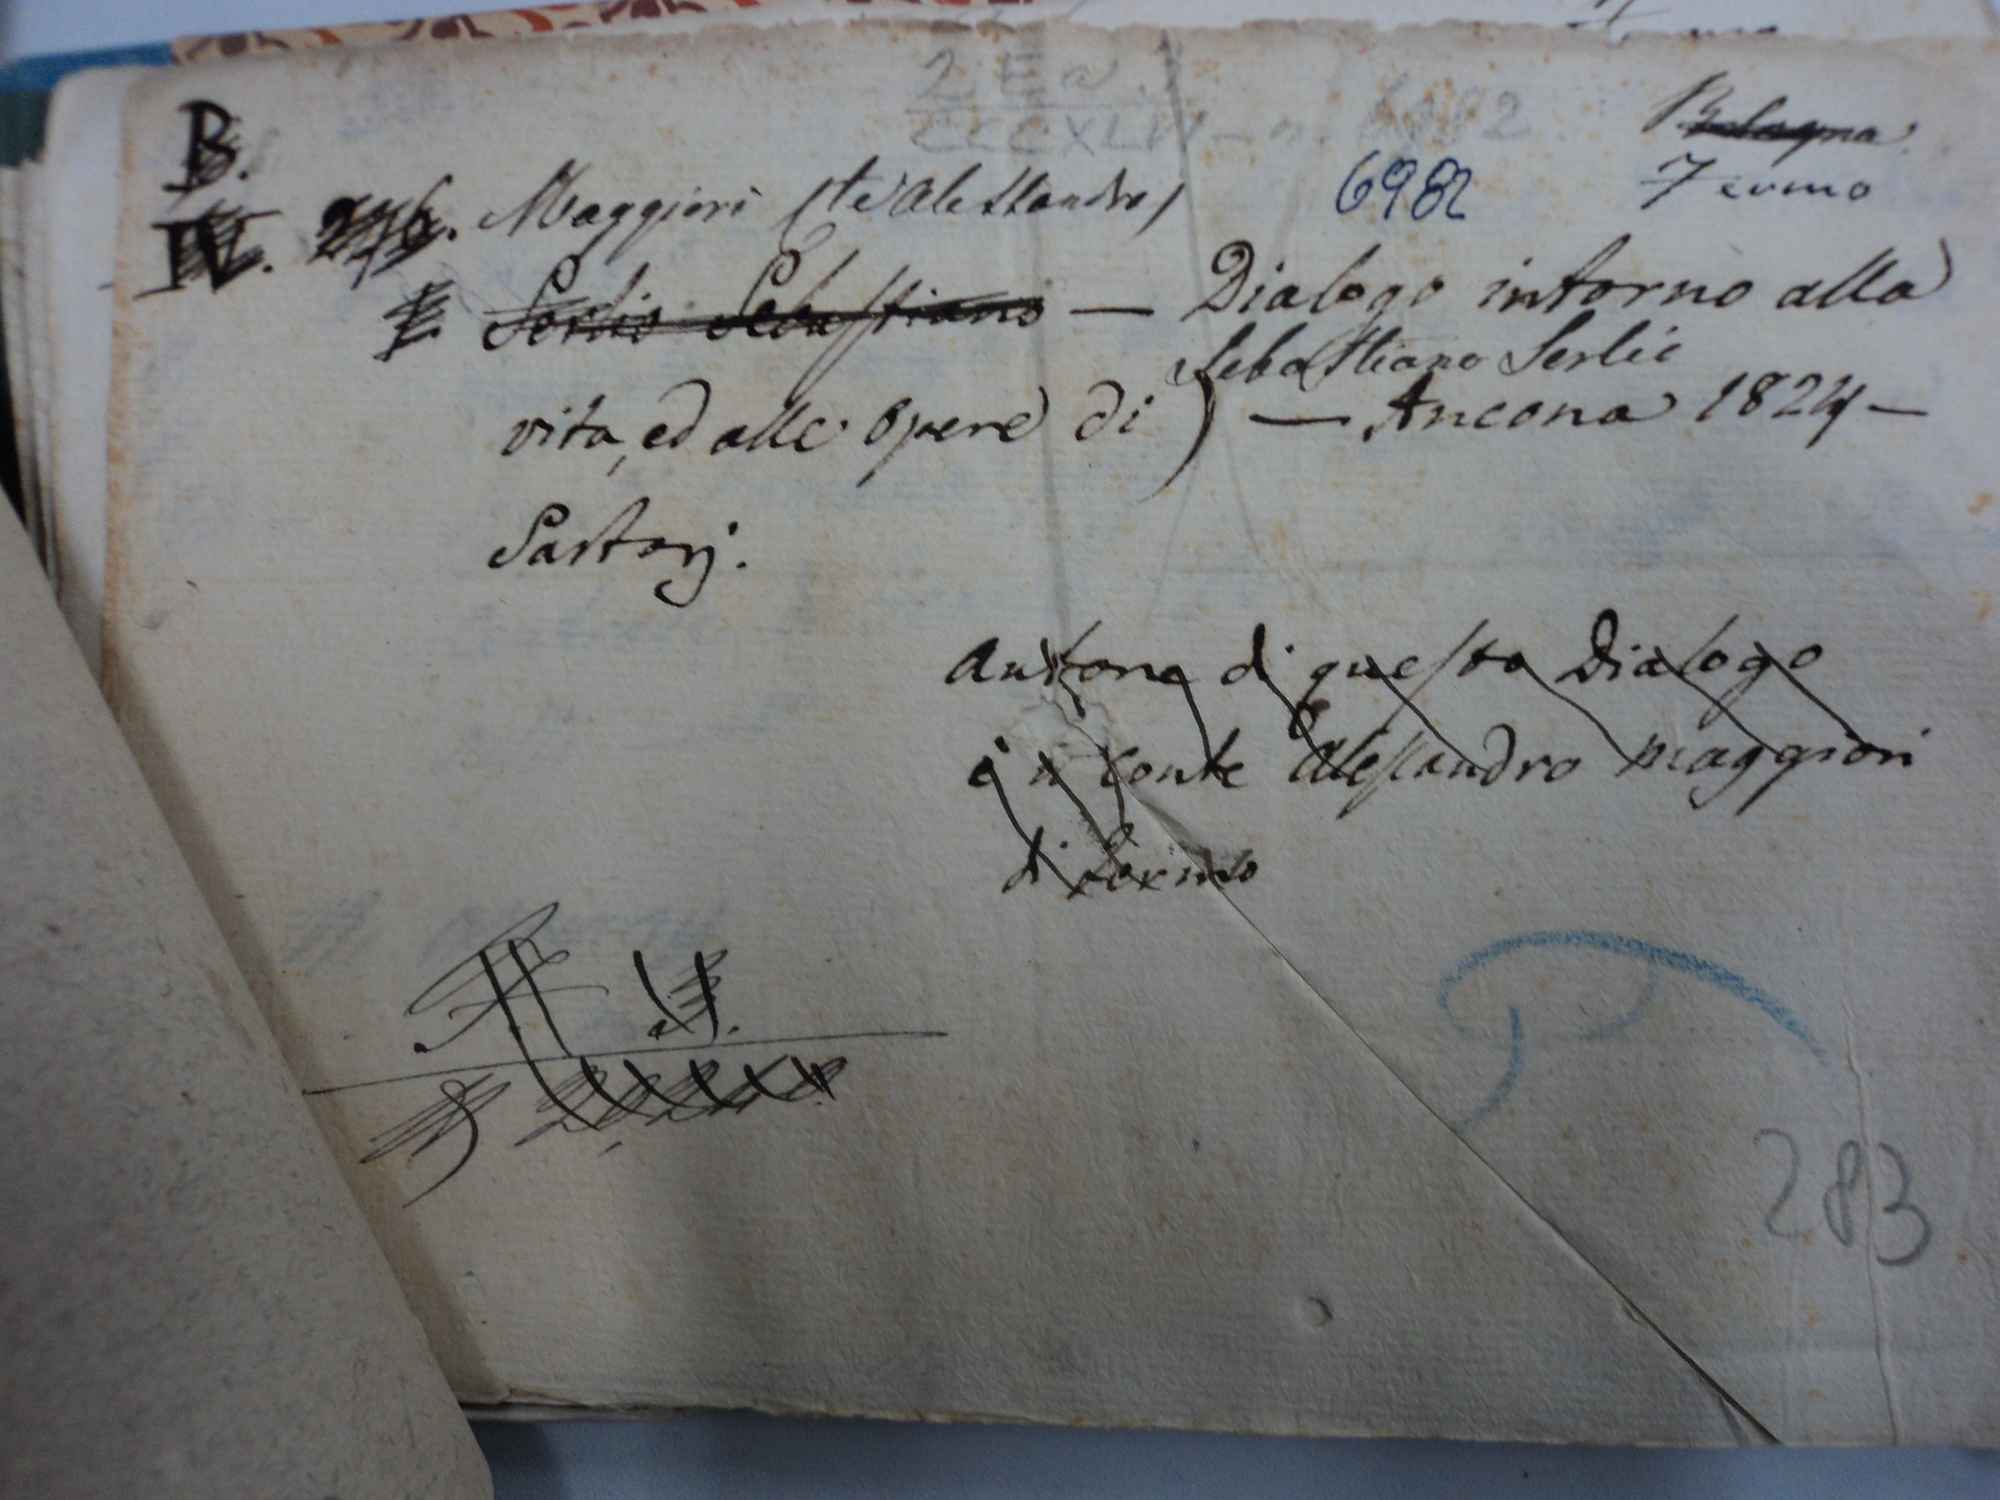 B.
IV. 276. Maggiori (te Alessandro) 6982
Bologna
Fermo
Serlio Sebastiano — Dialogo intorno alla
Sebastiano Serlio
vita, ed alle opere di ) — Ancona 1824 —
Sartorj.
Autore di questo Dialogo
è il conte Alessandro Maggiori
di Fermo
283